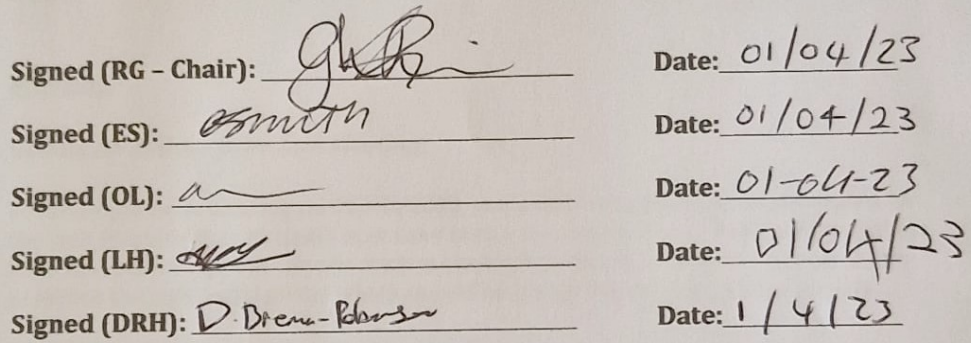 Signed (RG – Chair): Date: 01/04/23
Signed (ES): esmith Date: 01/04/23
Signed (OL): Date: 01-04-23
Signed (LH): Date: 01/04/23
Signed (DRH): D. Date: 1/4/23